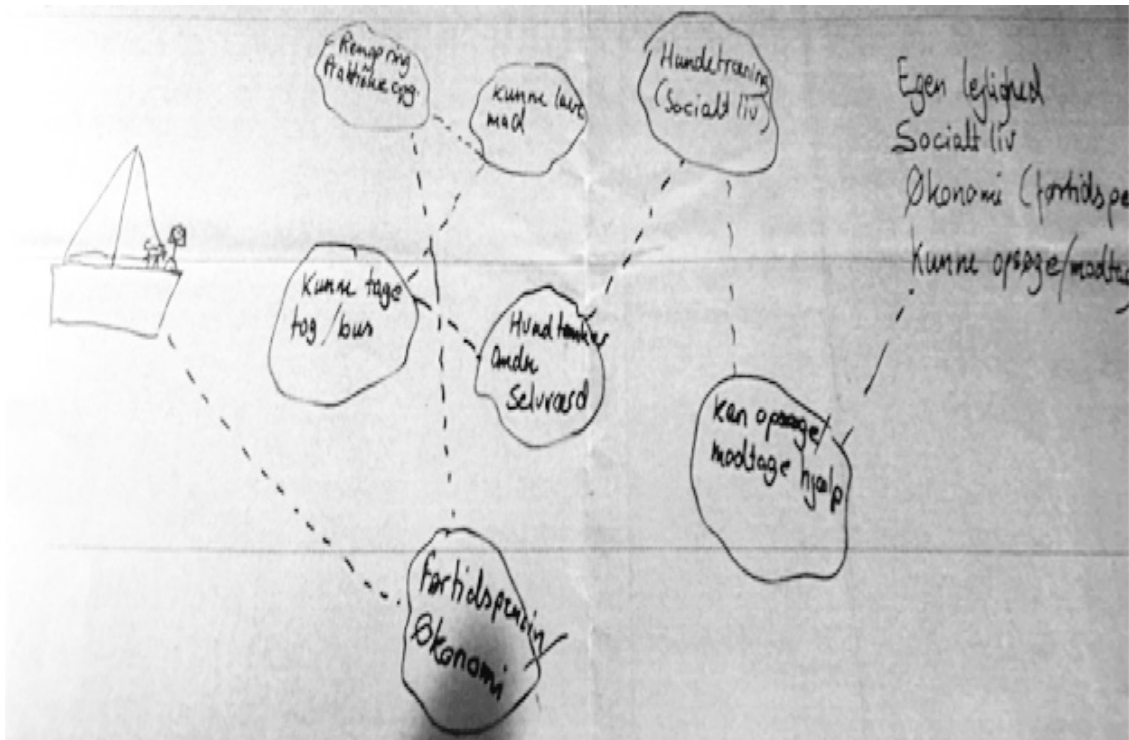 Rengøring
Praktiske opg.
Kunne lave
mad
Hundetræning
(Socialt liv)
Egen lejlighed
Socialt liv
Økonomi (førtidspe
Kunne opsøge/modtag
Kunne tage
tog/bus
Hund
andre
Selvværd
Kan opsøge/
modtage hjælp
Førtidspension/
Økonomi